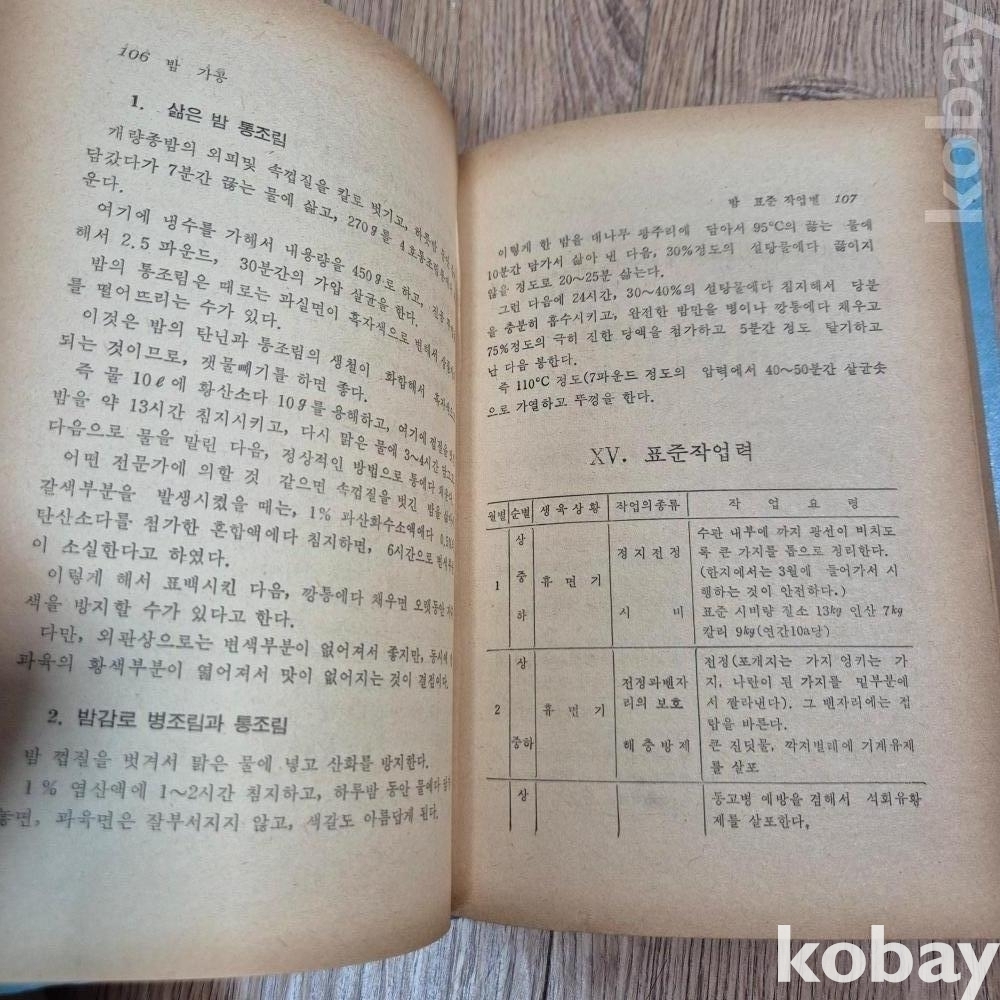 106 밤 가공
1. 삶은 밤 통조림
개량종밤의 외피및 속껍질을 칼로 벗기고, 하룻밤
담갔다가 7분간 끓는 물에 삶고, 270g를 4호통조림
운다.
여기에 냉수를 가해서 내용량을 450g로 하고,
해서 2.5 파운드, 30분간의 가압 살균을 한다.
밤의 통조림은 때로는 과실면이 흑자색으로 변해서
를 떨어뜨리는 수가 있다.
이것은 밤의 탄닌과 통조림의 생철이 화합해서
되는 것이므로, 갯물빼기를 하면 좋다.
즉 물 10ℓ에 황산소다 10g를 용해하고, 여기에 껍질을
밤을 약 13시간 침지시키고, 다시 맑은 물에 3~4시간 담그고
다음으로 물을 말린 다음, 정상적인 방법으로 통에다
어떤 전문가에 의할 것 같으면 속껍질을 벗긴 밤을
갈색부분을 발생시켰을 때는, 1% 과산화수소액에다
탄산소다를 첨가한 혼합액에다 침지하면, 6시간으로
이 소실한다고 하였다.
이렇게 해서 표백시킨 다음, 깡통에다 채우면 오랫동안
색을 방지할 수가 있다고 한다.
다만, 외관상으로는 변색부분이 없어져서 좋지만, 동시에
과육의 황색부분이 엷어져서 맛이 없어지는 것이 결점이다.
2. 밤감로 병조림과 통조림
밤 껍질을 벗겨서 맑은 물에 넣고 산화를 방지한다.
1% 염산액에 1~2시간 침지하고, 하루밤 동안 물에다
놓면, 과육면은 잘부서지지 않고, 색갈도 아름답게 된다.
밤 표준 작업별 107
이렇게 한 밤을 대나무 광주리에 담아서 95°C의 끓는 물에
10분간 담가서 삶아 낸 다음, 30%정도의 설탕물에다 끓이지
않을 정도로 20~25분 삶는다.
그런 다음에 24시간, 30~40%의 설탕물에다 침지해서 당분
을 충분히 흡수시키고, 완전한 밤만을 병이나 깡통에다 채우고
75%정도의 극히 진한 당액을 첨가하고 5분간 정도 탈기하고
난 다음 봉한다.
즉 110°C 정도(7파운드 정도의 압력에서 40~50분간 살균솟
으로 가열하고 뚜껑을 한다.
XV. 표준작업력
월별 순별 생육상황 작업의종류 작업요령
상 수관 내부에 까지 광선이 비치도
정지전정 록 큰 가지를 톱으로 정리한다.
중 (한지에서는 3월에 들어가서 시
1 휴면기 행하는 것이 안전하다.)
하 시비 표준 시비량 질소 13kg 인산 7kg
칼리 9kg(연간10a당)
상 전정(포개지는 가지 엉키는 가
전정과벤자 지, 나란이 된 가지를 밑부분에
리의 보호 서 짤라낸다). 그 벤자리에는 접
2 휴면기 랍을 바른다.
중하 해충방제 큰 진딧물, 깍지벌레에 기계유제
를 살포
상 동고병 예방을 겸해서 석회유황
제를 살포한다.
kobay
kobay